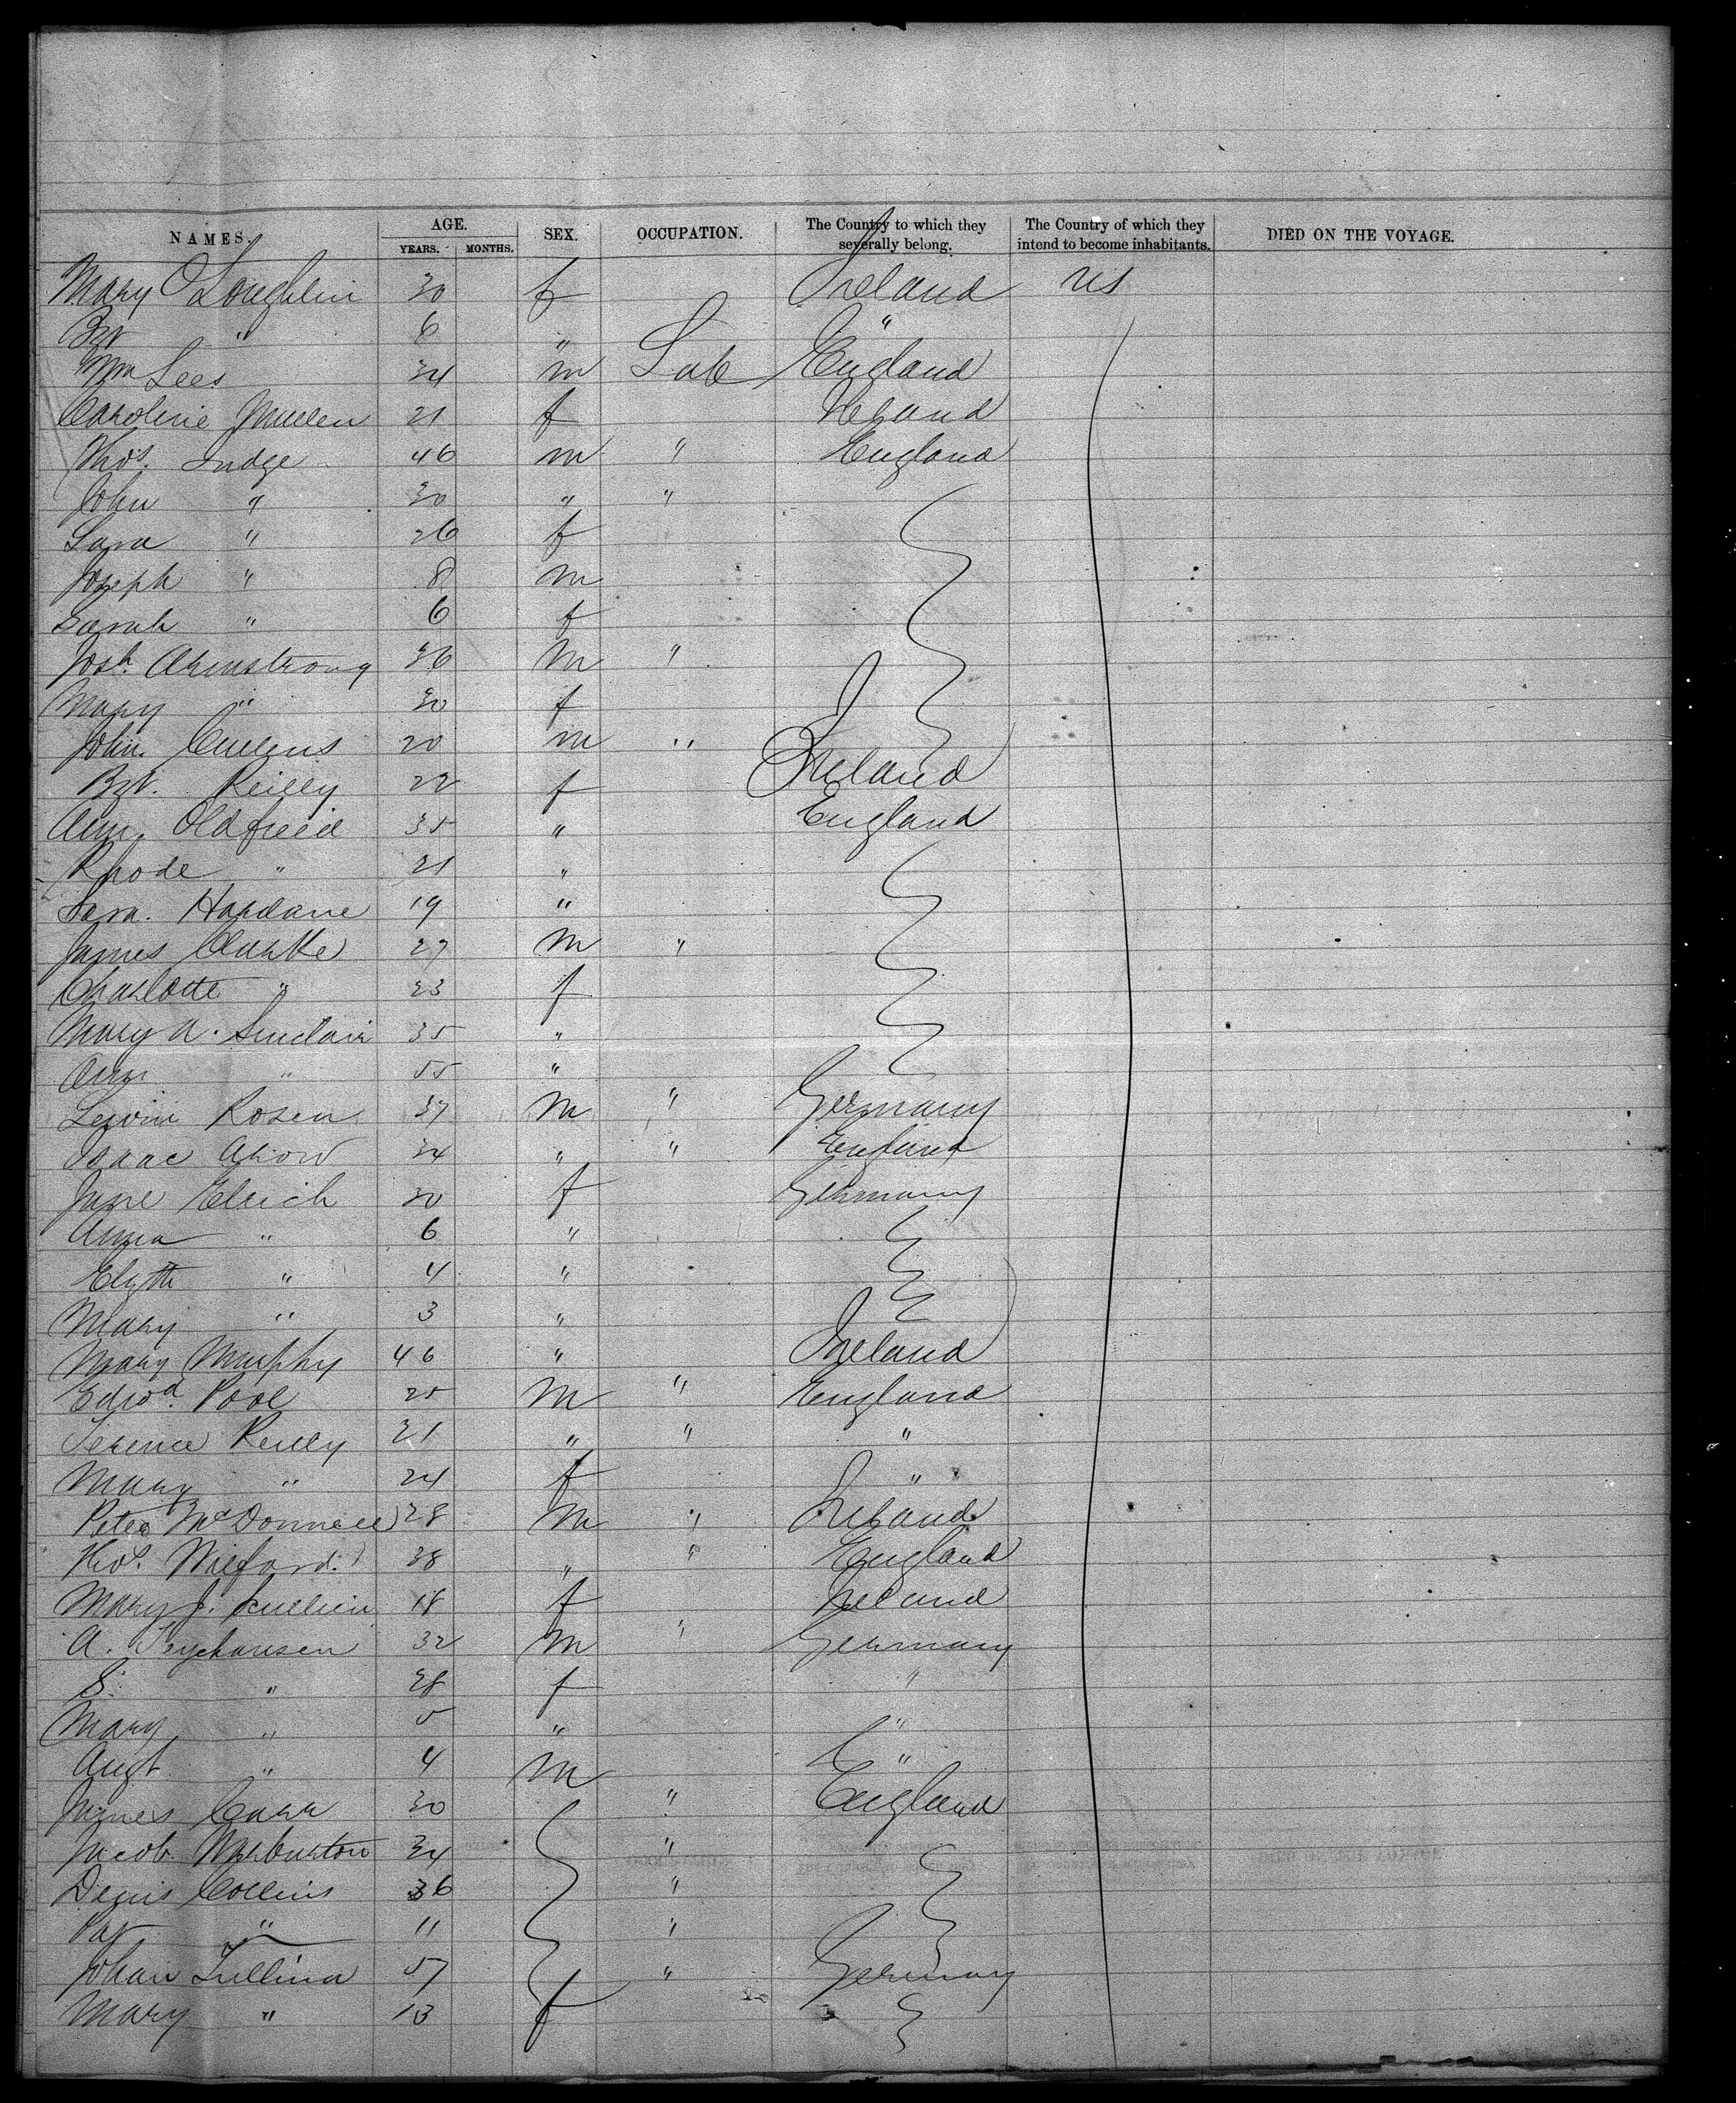 NAMES. AGE. SEX. OCCUPATION. The Country to which they severally belong. The Country of which they intend to become inhabitants. DIED ON THE VOYAGE.
YEARS. MONTHS.
Mary O'Loughlin 30 f Ireland US
Bgt " 6 " "
Wm Lees 34 m Lab England
Caroline Mullen 21 f Ireland
Thos. Judge 46 m " England
John " 30 " "
Sara " 26 f
Joseph " 8 m
Sarah " 6 f
Josh. Armstrong 36 m "
Mary " 30 f
John. Cullens 20 m " Ireland
Bgt. Reilly 22 f Ireland
Ann. Oldfield 35 " England
Rhode " 21 "
Sara. Hardane 19 "
James Clarke 27 m "
Charlotte " 23 f
Mary A. Sinclair 35 "
Ann " 55 "
Rosen 37 m " Germany
Isaac 34 " " England
Jane Elrich 30 f Germany
Anna " 6 "
" 4 "
Mary " 3 "
Mary Murphy 46 " Ireland
Edwd. Pool 25 m " England
Terence Reilly 31 " " "
Mary " 24 f "
Peter McDonnell 28 m " Ireland
Thos. Wilford 38 " " England
Mary J. 18 f Ireland
A. 32 m " Germany
S. " 28 f "
Mary " 5 " "
Augt " 4 m "
James Carr 30 " England
Jacob Warburton 34 "
Denis Collins 36 "
Pat " 11 "
Johan 57 " Germany
Mary " 13 f